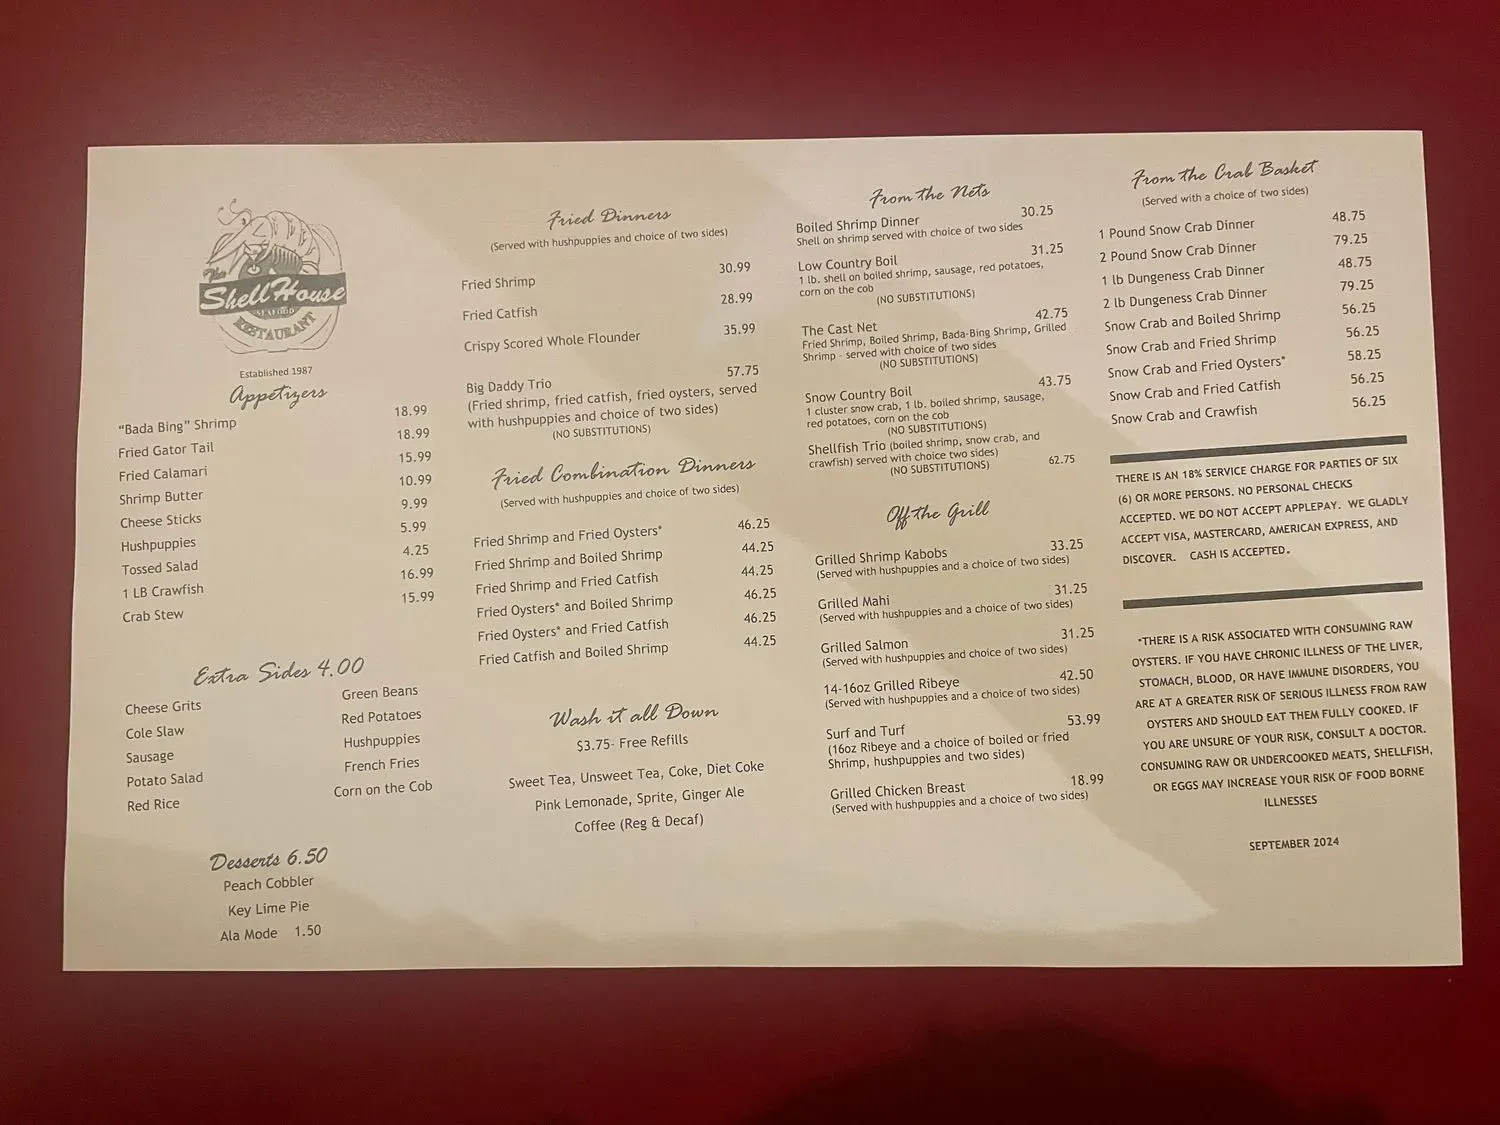 The
Shell House
SEAFOOD
RESTAURANT
Established 1987
Appetizers
"Bada Bing" Shrimp 18.99
Fried Gator Tail 18.99
Fried Calamari 15.99
Shrimp Butter 10.99
Cheese Sticks 9.99
Hushpuppies 5.99
Tossed Salad 4.25
1 LB Crawfish 16.99
Crab Stew 15.99
Extra Sides 4.00
Cheese Grits
Cole Slaw
Sausage
Potato Salad
Red Rice
Green Beans
Red Potatoes
Hushpuppies
French Fries
Corn on the Cob
Desserts 6.50
Peach Cobbler
Key Lime Pie
Ala Mode 1.50
Fried Dinners
(Served with hushpuppies and choice of two sides)
Fried Shrimp 30.99
Fried Catfish 28.99
Crispy Scored Whole Flounder 35.99
Big Daddy Trio 57.75
(Fried shrimp, fried catfish, fried oysters, served
with hushpuppies and choice of two sides)
(NO SUBSTITUTIONS)
Fried Combination Dinners
(Served with hushpuppies and choice of two sides)
Fried Shrimp and Fried Oysters* 46.25
Fried Shrimp and Boiled Shrimp 44.25
Fried Shrimp and Fried Catfish 44.25
Fried Oysters* and Boiled Shrimp 46.25
Fried Oysters* and Fried Catfish 46.25
Fried Catfish and Boiled Shrimp 44.25
Wash it all Down
$3.75- Free Refills
Sweet Tea, Unsweet Tea, Coke, Diet Coke
Pink Lemonade, Sprite, Ginger Ale
Coffee (Reg & Decaf)
From the Nets
Boiled Shrimp Dinner 30.25
Shell on shrimp served with choice of two sides
Low Country Boil 31.25
1 lb. shell on boiled shrimp, sausage, red potatoes,
corn on the cob
(NO SUBSTITUTIONS)
The Cast Net 42.75
Fried Shrimp, Boiled Shrimp, Bada-Bing Shrimp, Grilled
Shrimp - served with choice of two sides
(NO SUBSTITUTIONS)
Snow Country Boil 43.75
1 cluster snow crab, 1 lb. boiled shrimp, sausage,
red potatoes, corn on the cob
(NO SUBSTITUTIONS)
Shellfish Trio (boiled shrimp, snow crab, and
crawfish) served with choice two sides)
(NO SUBSTITUTIONS) 62.75
Off the Grill
Grilled Shrimp Kabobs 33.25
(Served with hushpuppies and a choice of two sides)
Grilled Mahi 31.25
(Served with hushpuppies and a choice of two sides)
Grilled Salmon 31.25
(Served with hushpuppies and a choice of two sides)
14-16oz Grilled Ribeye 42.50
(Served with hushpuppies and a choice of two sides)
Surf and Turf 53.99
(16oz Ribeye and a choice of boiled or fried
Shrimp, hushpuppies and two sides)
Grilled Chicken Breast 18.99
(Served with hushpuppies and a choice of two sides)
From the Crab Basket
(Served with a choice of two sides)
1 Pound Snow Crab Dinner 48.75
2 Pound Snow Crab Dinner 79.25
1 lb Dungeness Crab Dinner 48.75
2 lb Dungeness Crab Dinner 79.25
Snow Crab and Boiled Shrimp 56.25
Snow Crab and Fried Shrimp 56.25
Snow Crab and Fried Oysters* 58.25
Snow Crab and Fried Catfish 56.25
Snow Crab and Crawfish 56.25
THERE IS AN 18% SERVICE CHARGE FOR PARTIES OF SIX
(6) OR MORE PERSONS. NO PERSONAL CHECKS
ACCEPTED. WE DO NOT ACCEPT APPLEPAY. WE GLADLY
ACCEPT VISA, MASTERCARD, AMERICAN EXPRESS, AND
DISCOVER. CASH IS ACCEPTED.
*THERE IS A RISK ASSOCIATED WITH CONSUMING RAW
OYSTERS. IF YOU HAVE CHRONIC ILLNESS OF THE LIVER,
STOMACH, BLOOD, OR HAVE IMMUNE DISORDERS, YOU
ARE AT A GREATER RISK OF SERIOUS ILLNESS FROM RAW
OYSTERS AND SHOULD EAT THEM FULLY COOKED. IF
YOU ARE UNSURE OF YOUR RISK, CONSULT A DOCTOR.
CONSUMING RAW OR UNDERCOOKED MEATS, SHELLFISH,
OR EGGS MAY INCREASE YOUR RISK OF FOOD BORNE
ILLNESSES
SEPTEMBER 2024